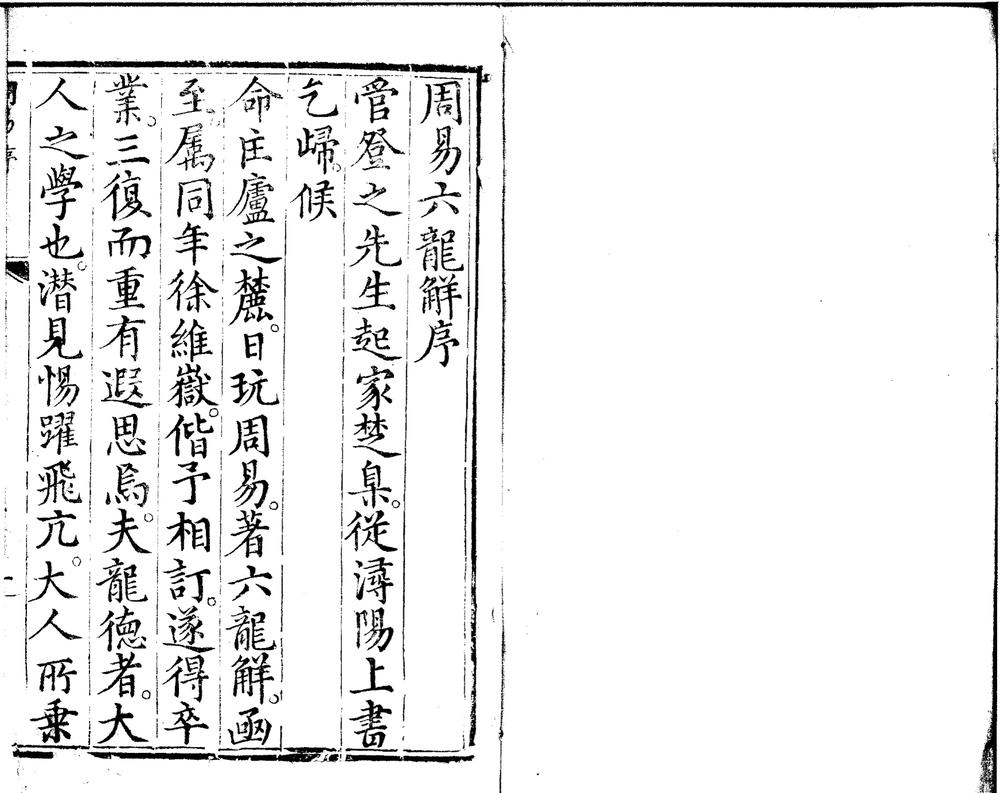 周易六龍解序
管登之先生起家楚臬。從潯陽上書
乞歸。候
命庄廬之麓。日玩周易。著六龍解。函
至。属同年徐維嶽。偕予相訂。遂得卒
業。三復而重有遐思焉。夫龍德者。大
人之學也。潜見惕躍飛亢。大人所乗